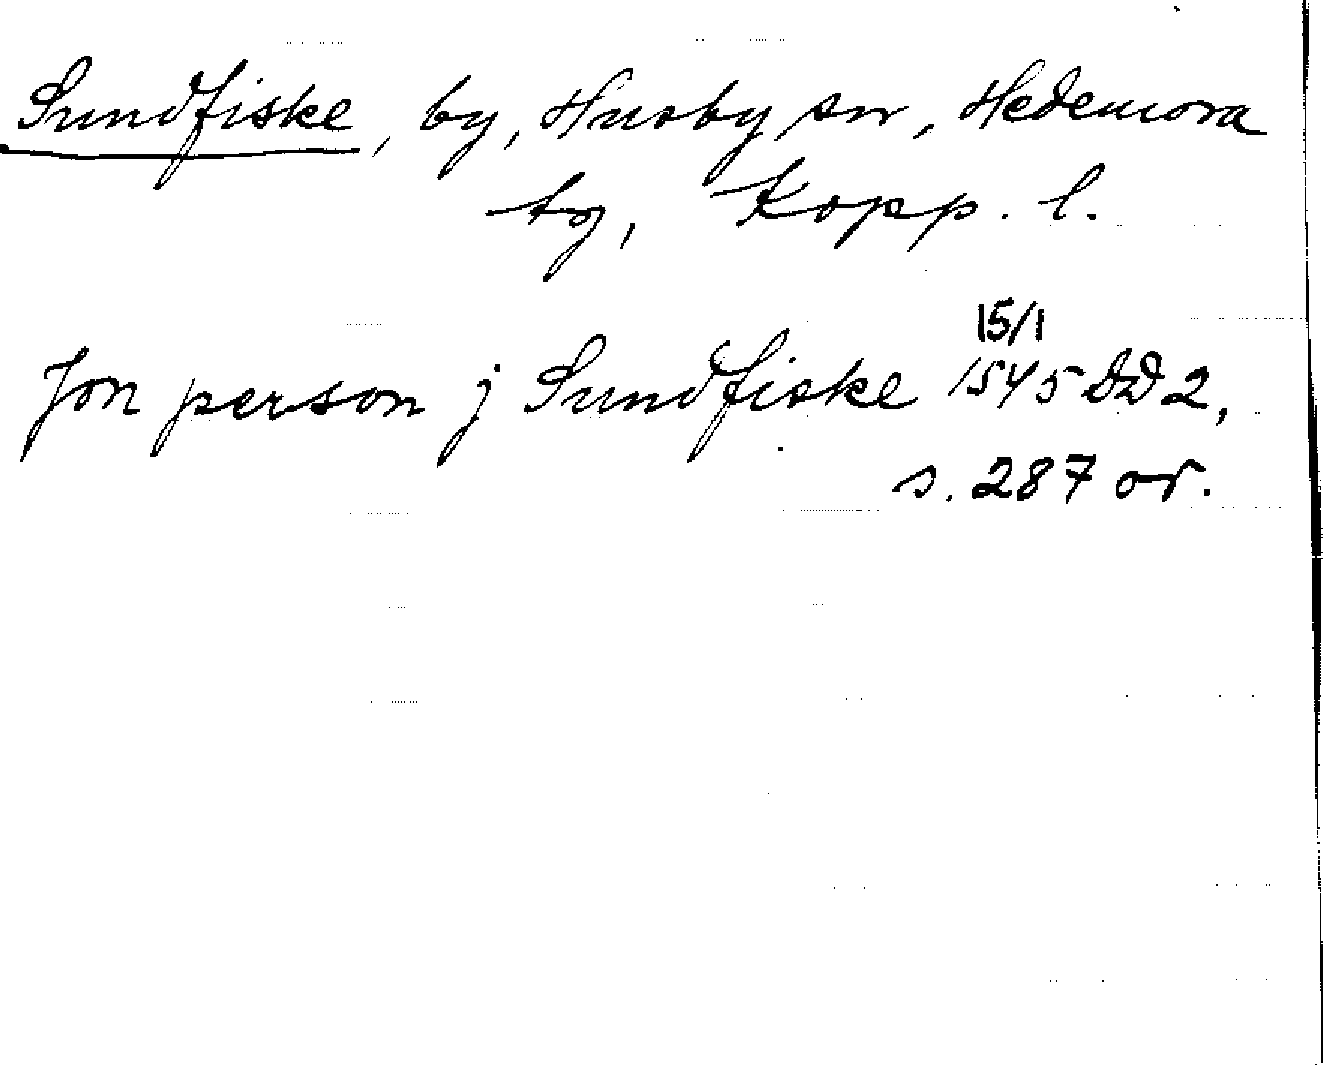 Sundfiske, by, Husby sn, Hedemora
tg, Kopp. l.
15/1
Jon person j Sundfiske 1545 DD 2,
s. 287 or.